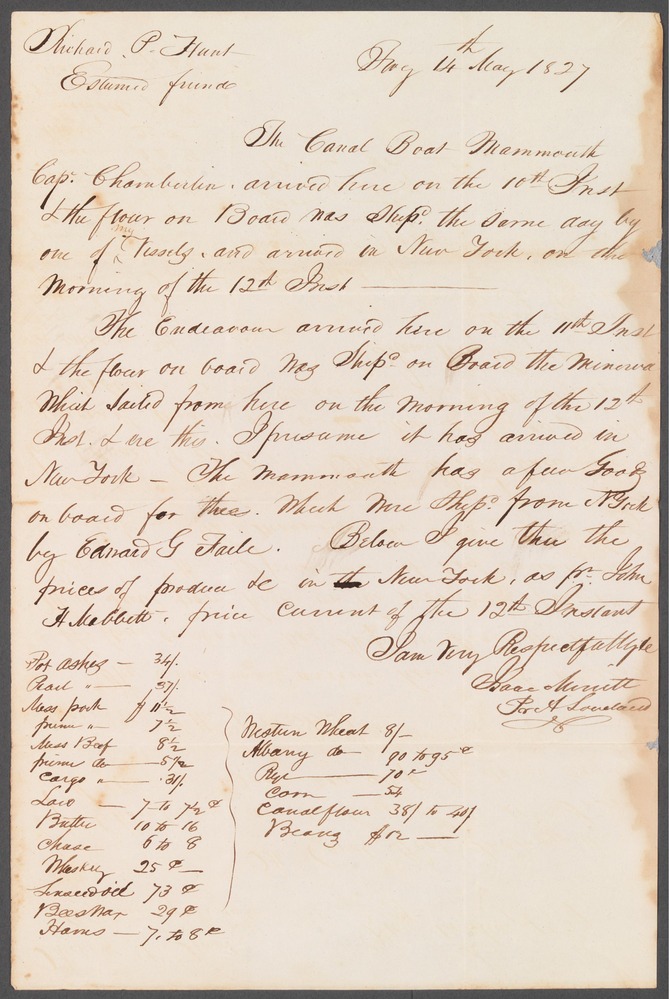 Richard P. Hunt
Troy 14th May 1827
Estumed friend
The Canal Boat Mammouth
Cap. Chamberlin. arrived here on the 10th Inst
& the flour on Board was Shipd. the same day by
one of my Vissels. and arrived in New York, on the
Morning of the 12th Inst
The Endeavour arrived here on the 11th Inst
& the flour on board was Shipd on Board the Minerva
Which Sailed from here on the Morning of the 12th
Inst. & ere this. I presume it has arrived in
New York — The Mammouth has a few Goods
on board for thee. Which Were Shipd. from N York
by Edward G Faile. Below I give thee the
prices of produce &c in New York, as pr. John
H Mabbett. price current of the 12th Instant
I am Very Respectfully &c
Isaac Merritt
Pr A Loveland
Pot ashes — 34/.
Pearl " — 37/.
Mess pork $ 11 1/2
prime " — 7 1/2
Mess Beef 8 1/2
prime do — 5 1/2
Cargo " — .3/.
Lard — 7 to 7 1/2 ¢
Butter 10 to 16
Chease 6 to 8
Whiskey 25 ¢ —
Linseed oil 73 ¢
Bees Wax 29 ¢
Hams — 7. to 8 ¢
Western Wheat 8/—
Albany do — 90 to 95 ¢
Rye — 70 "
Corn — 54
Canal flour 38/ to 40/
Beans $12 —